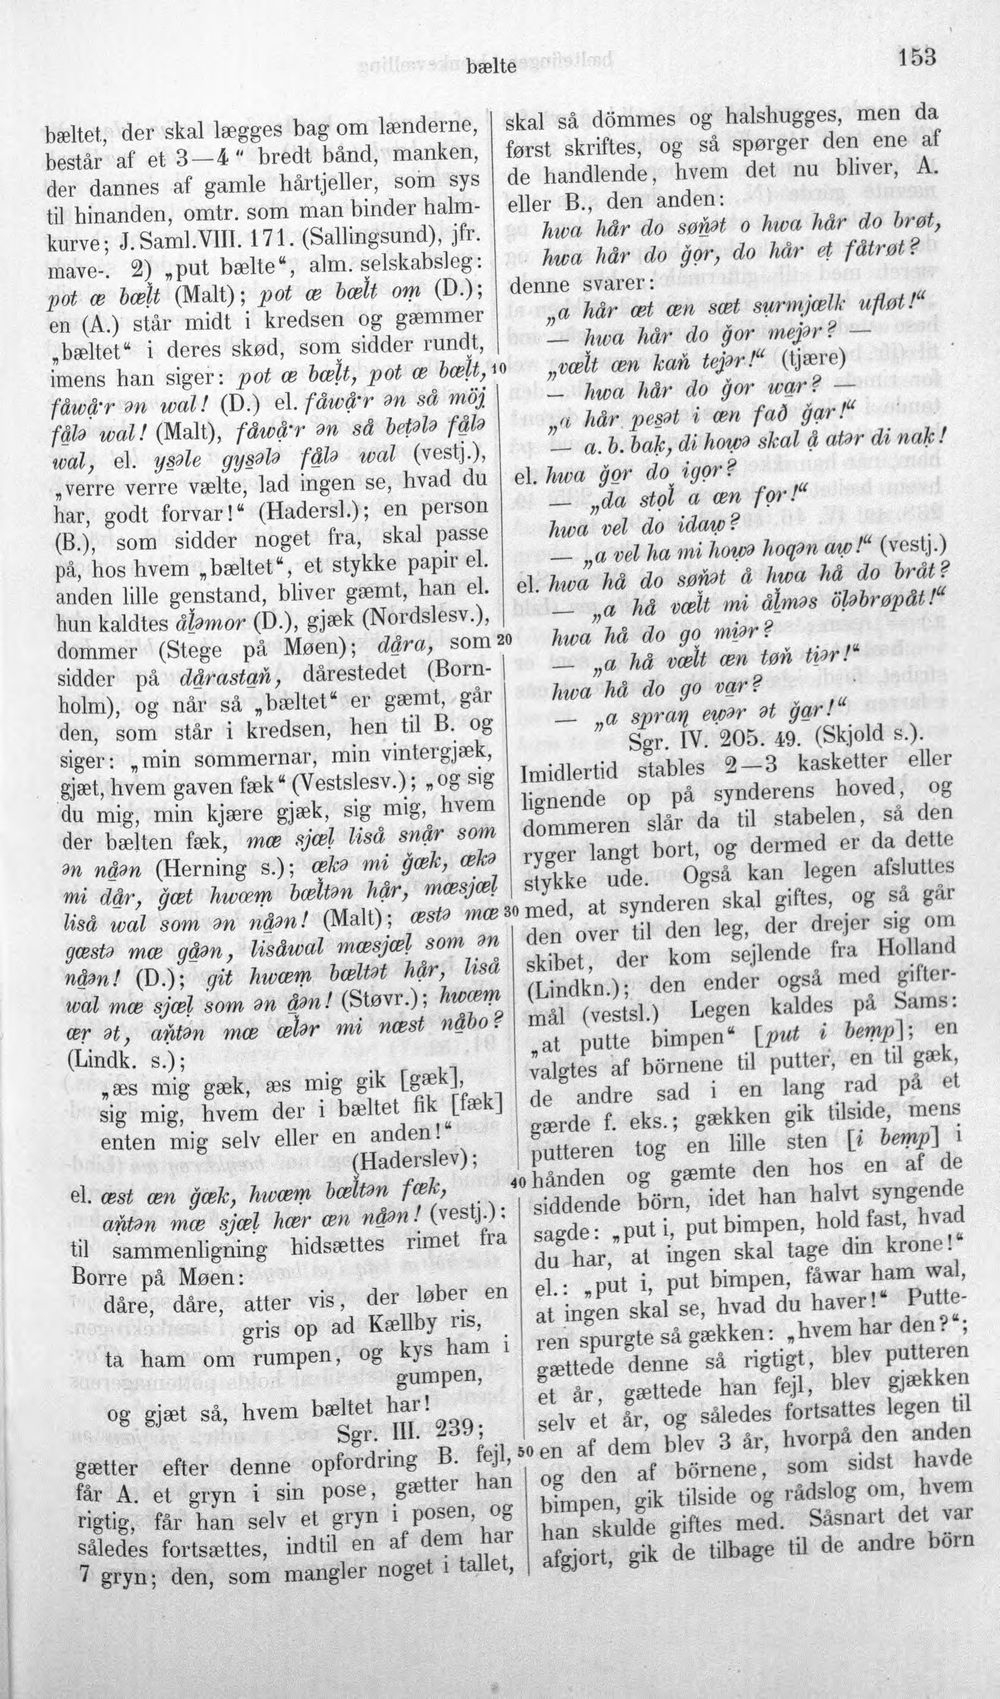 bælte
153
bæltet, der skal lægges bag om lænderne,
består af et 3—4" bredt bånd, manken,
der dannes af gamle hårtjeller, som sys
til hinanden, omtr. som man binder halm-
kurve; J.Saml.VIII. 171. (Sallingsund), jfr.
mave-. 2) „put bælte“, alm. selskabsleg:
pot æ bælt (Malt); pot æ bælt om (D.);
en (A.) står midt i kredsen og gæmmer
„bæltet“ i deres skød, som sidder rundt,
imens han siger: pot æ bælt, pot æ bælt, 10
fåwå·r ən wal! (D.) el. fåwå·r ən så möj
fålə wal! (Malt), fåwå·r ən så betələ fålə
wal, el. ysəle gysələ fålə wal (vestj.),
„verre verre vælte, lad ingen se, hvad du
har, godt forvar!“ (Hadersl.); en person
(B.), som sidder noget fra, skal passe
på, hos hvem „bæltet“, et stykke papir el.
anden lille genstand, bliver gæmt, han el.
hun kaldtes åləmor (D.), gjæk (Nordslesv.),
dommer (Stege på Møen); dåra, som 20
sidder på dårastań, dårestedet (Born-
holm), og når så „bæltet“ er gæmt, går
den, som står i kredsen, hen til B. og
siger: „min sommernar, min vintergjæk,
gjæt, hvem gaven fæk“ (Vestslesv.); „og sig
du mig, min kjære gjæk, sig mig, hvem
der bælten fæk, mæ sjæl liså snår som
ən nåən (Herning s.); ækə mi ğæk, ækə
mi dår, ğæt hwæm bæltən hår, mæsjæl
liså wal som ən nåən! (Malt); æstə mæ 30
gæstə mæ gåən, lisåwal mæsjæl som ən
nåən! (D.); git hwæm bæltət hår, liså
wal mæ sjæl som ən åən! (Støvr.); hwæm
ær ət, ańtən mæ ælər mi næst nåbo?
(Lindk. s.);
„æs mig gæk, æs mig gik [gæk],
sig mig, hvem der i bæltet fik [fæk]
enten mig selv eller en anden!“
(Haderslev);
el. æst æn ğæk, hwæm bæltən fæk, 40
ańtən mæ sjæl hær æn nåən! (vestj.):
til sammenligning hidsættes rimet fra
Borre på Møen:
dåre, dåre, atter vis, der løber en
gris op ad Kællby ris,
ta ham om rumpen, og kys ham i
gumpen,
og gjæt så, hvem bæltet har!
Sgr. III. 239;
gætter efter denne opfordring B. fejl, 50
får A. et gryn i sin pose, gætter han
rigtig, får han selv et gryn i posen, og
således fortsættes, indtil en af dem har
7 gryn; den, som mangler noget i tallet,
skal så dömmes og halshugges, men da
først skriftes, og så spørger den ene af
de handlende, hvem det nu bliver, A.
eller B., den anden:
hwa hår do søńət o hwa hår do brøt,
hwa hår do ğor, do hår et fåtrøt?
denne svarer:
„a hår æt æn sæt surmjælk ufløt!“
— hwa hår do ğor mejər? —
„vælt æn kań tejər!“ (tjære)
— hwa hår do ğor war? —
„a hår pesət i æn fað ğar!“
— a. b. bak, di howə skal å atər di nak!
el. hwa ğor do igor?
— „da stol a æn for!“
hwa vel do idaw?
— „a vel ha mi howə hoqən aw!“ (vestj.)
el. hwa hå do søńət å hwa hå do bråt?
— „a hå vælt mi ålməs öləbrøpåt!“
hwa hå do go miər?
— „a hå vælt æn tøń tiər!“
hwa hå do go var?
— „a spraŋ ewər ət ğar!“
Sgr. IV. 205. 49. (Skjold s.).
Imidlertid stables 2—3 kasketter eller
lignende op på synderens hoved, og
dommeren slår da til stabelen, så den
ryger langt bort, og dermed er da dette
stykke ude. Også kan legen afsluttes
med, at synderen skal giftes, og så går
den over til den leg, der drejer sig om
skibet, der kom sejlende fra Holland
(Lindkn.); den ender også med gifter-
mål (vestsl.) Legen kaldes på Sams:
„at putte bimpen“ [put i bemp]; en
valgtes af börnene til putter, en til gæk,
de andre sad i en lang rad på et
gærde f. eks.; gækken gik tilside, mens
putteren tog en lille sten [i bemp] i
hånden og gæmte den hos en af de
siddende börn, idet han halvt syngende
sagde: „put i, put bimpen, hold fast, hvad
du har, at ingen skal tage din krone!“
el.: „put i, put bimpen, fåwar ham wal,
at ingen skal se, hvad du haver!“ Putte-
ren spurgte så gækken: „hvem har den?“;
gættede denne så rigtigt, blev putteren
et år, gættede han fejl, blev gjækken
selv et år, og således fortsattes legen til
en af dem blev 3 år, hvorpå den anden
og den af börnene, som sidst havde
bimpen, gik tilside og rådslog om, hvem
han skulde giftes med. Såsnart det var
afgjort, gik de tilbage til de andre börn